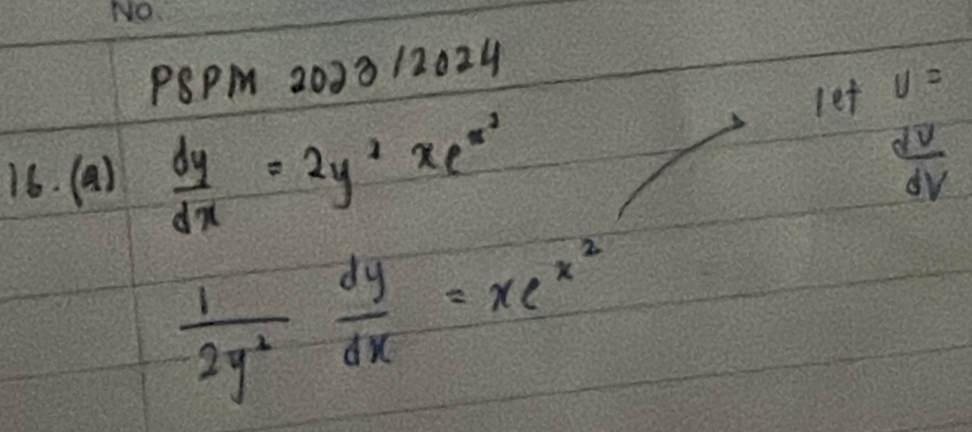 No.
PSPM 2023/2024
16. (a) dy/dx = 2y² xe^x²
let u =
du/dv
1/2y² dy/dx = xe^x²